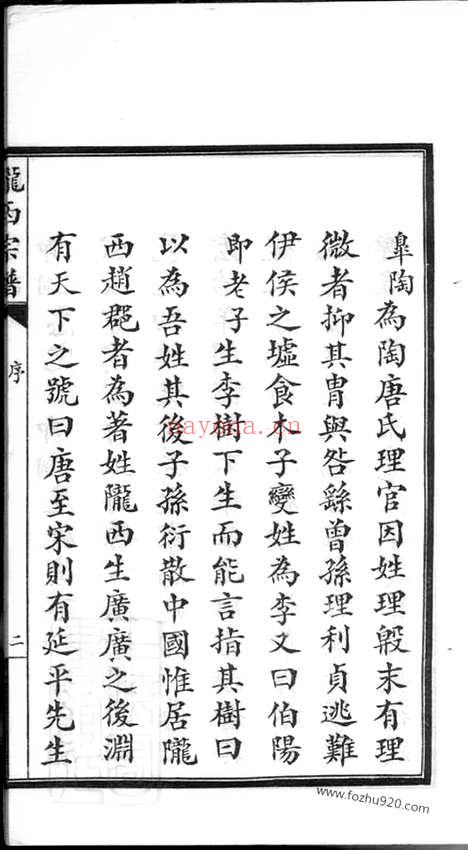 皐陶為陶唐氏理官因姓理殷末有理
微者抑其胄與咎繇曾孫理利貞逃難
伊侯之墟食木子變姓為李又曰伯陽
即老子生李樹下生而能言指其樹曰
以為吾姓其後子孫衍散中國惟居隴
西趙郡者為著姓隴西生廣廣之後淵
有天下之號曰唐至宋則有延平先生
隴西宗譜
序
二
nayona.cn
www.fozhu920.com